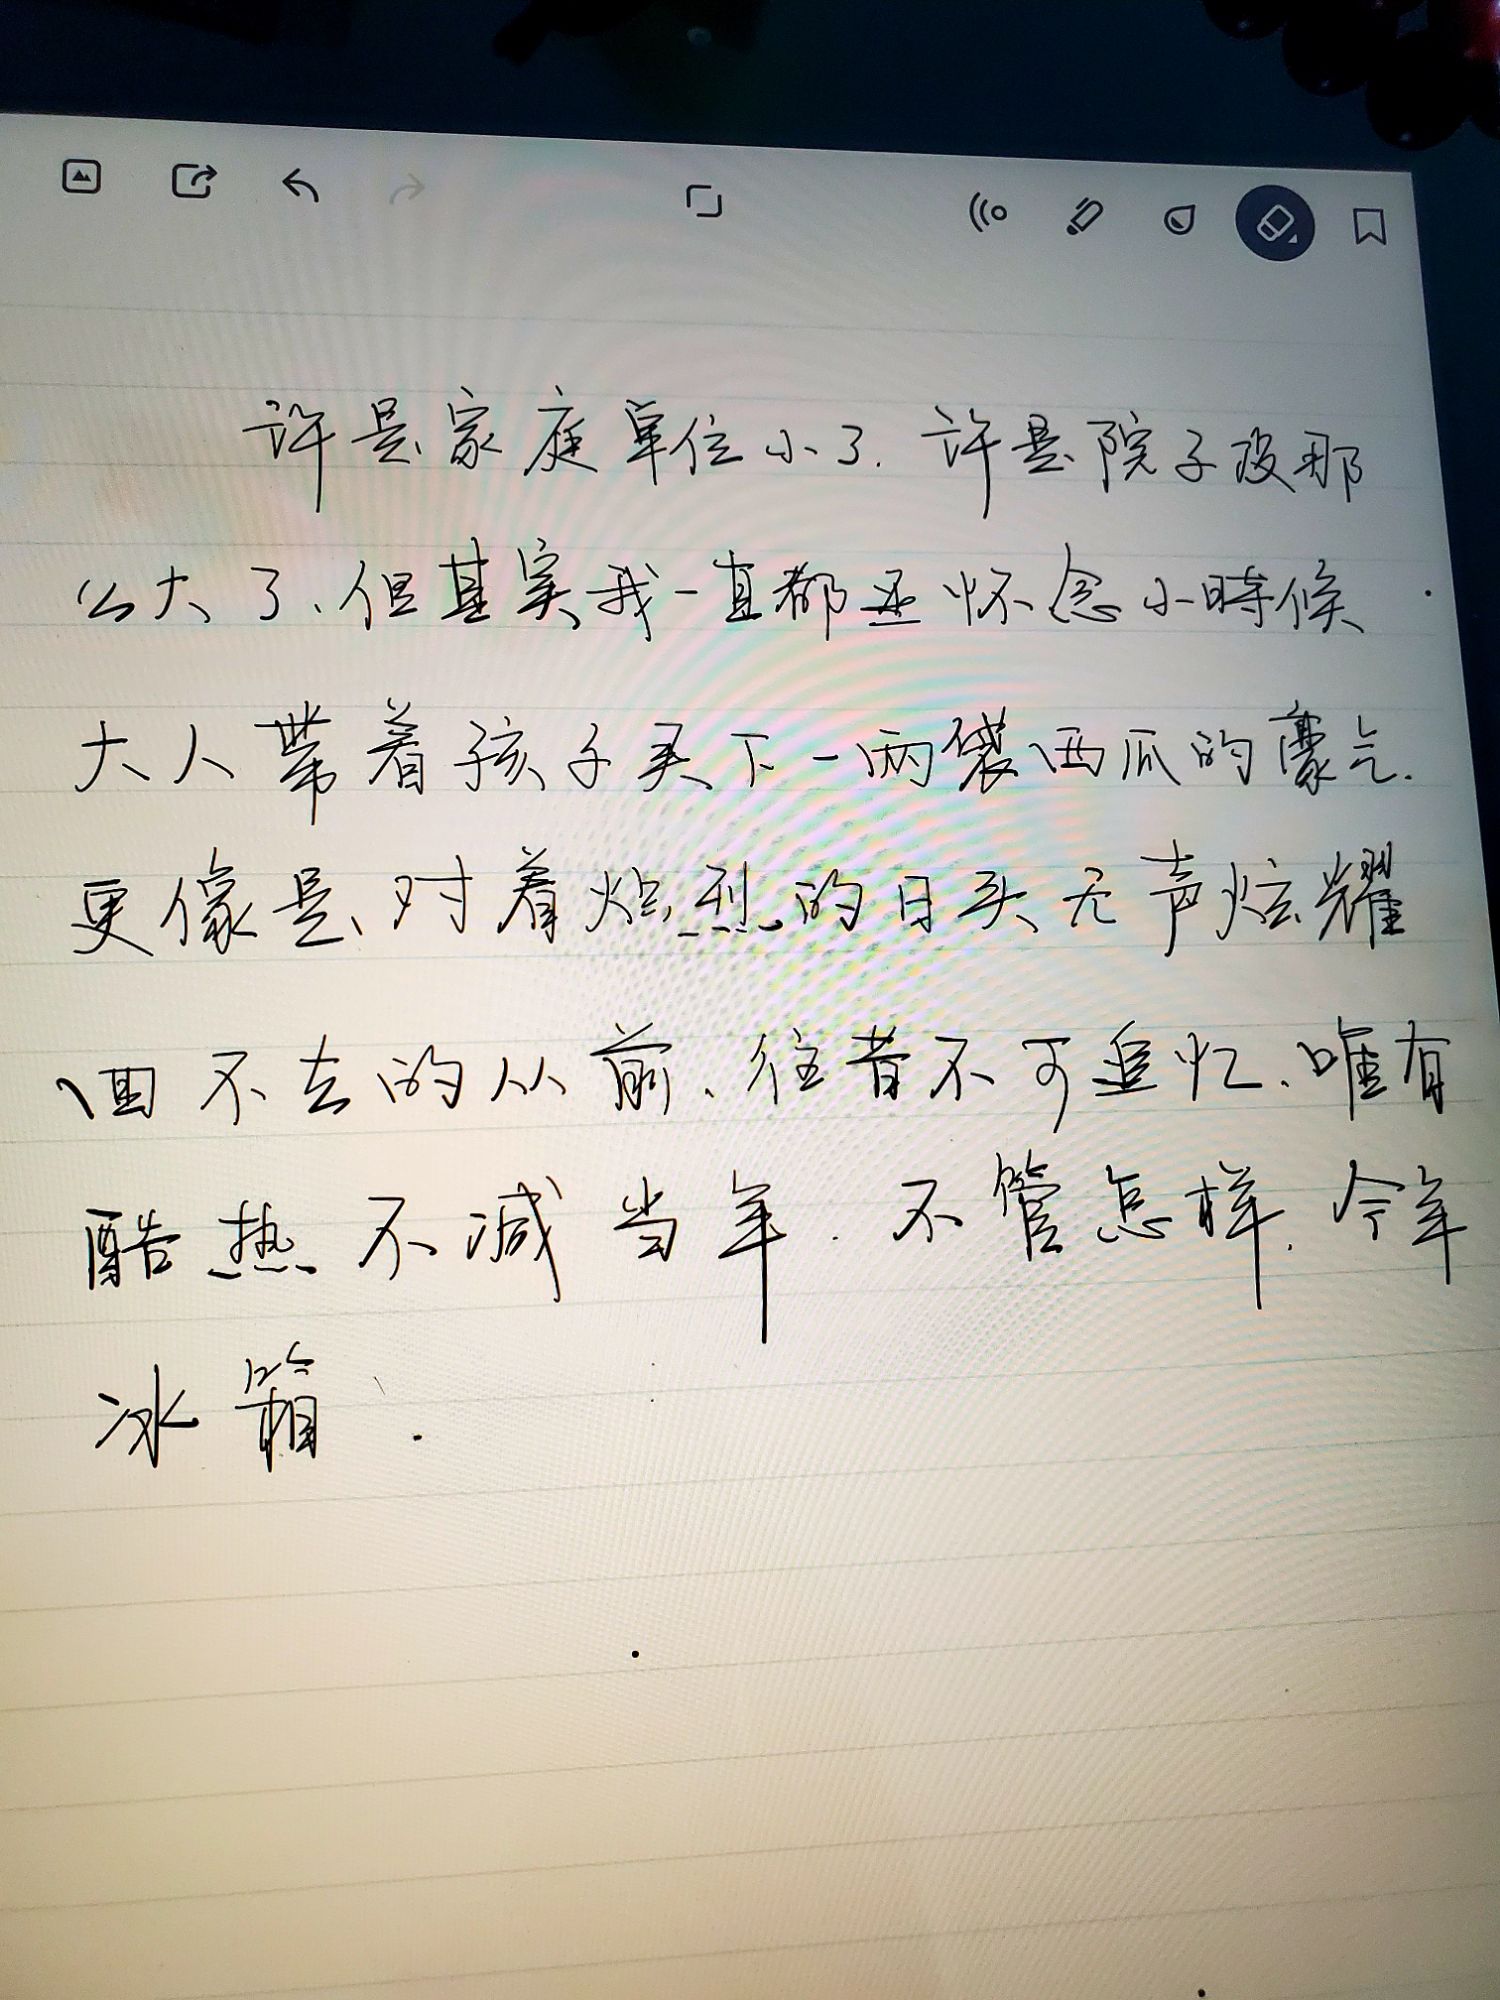 许是家庭单位小了.许是院子没那
么大了、但其实我一直都还怀念小時候
大人带着孩子买下一两袋西瓜的豪气.
更像是、对着炽烈的日头无声炫耀
回不去的从前、往昔不可追忆、唯有
酷热不减当年.不管怎样.今年
冰箱.